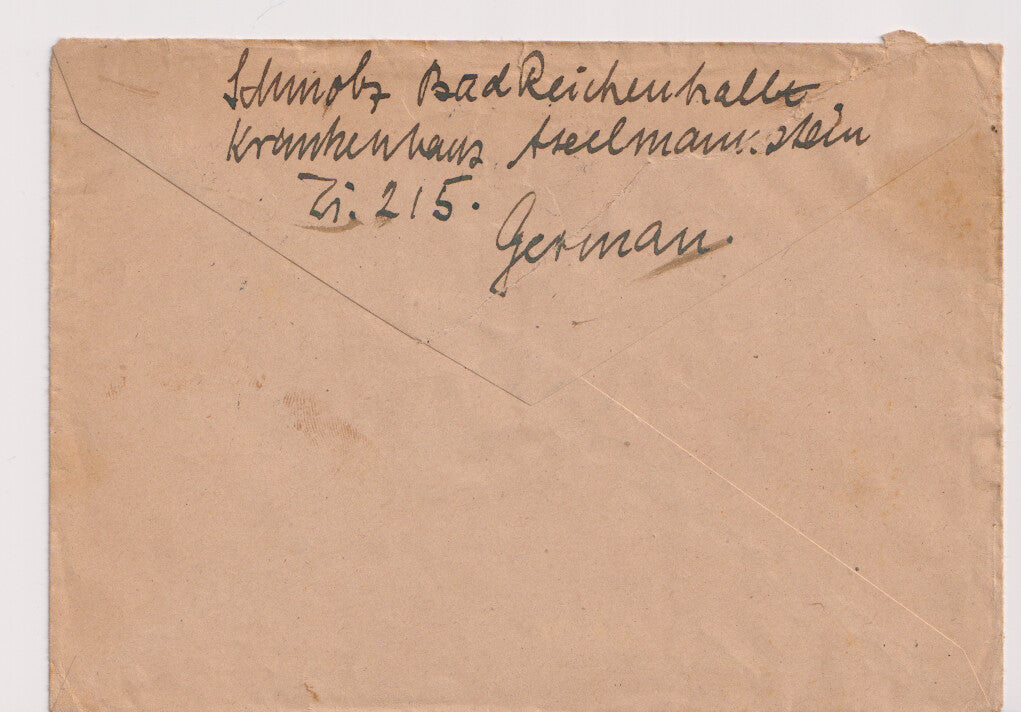 Schmolz Bad Reichenhall
Krankenhaus Axelmannstein
Zi. 215.
German.